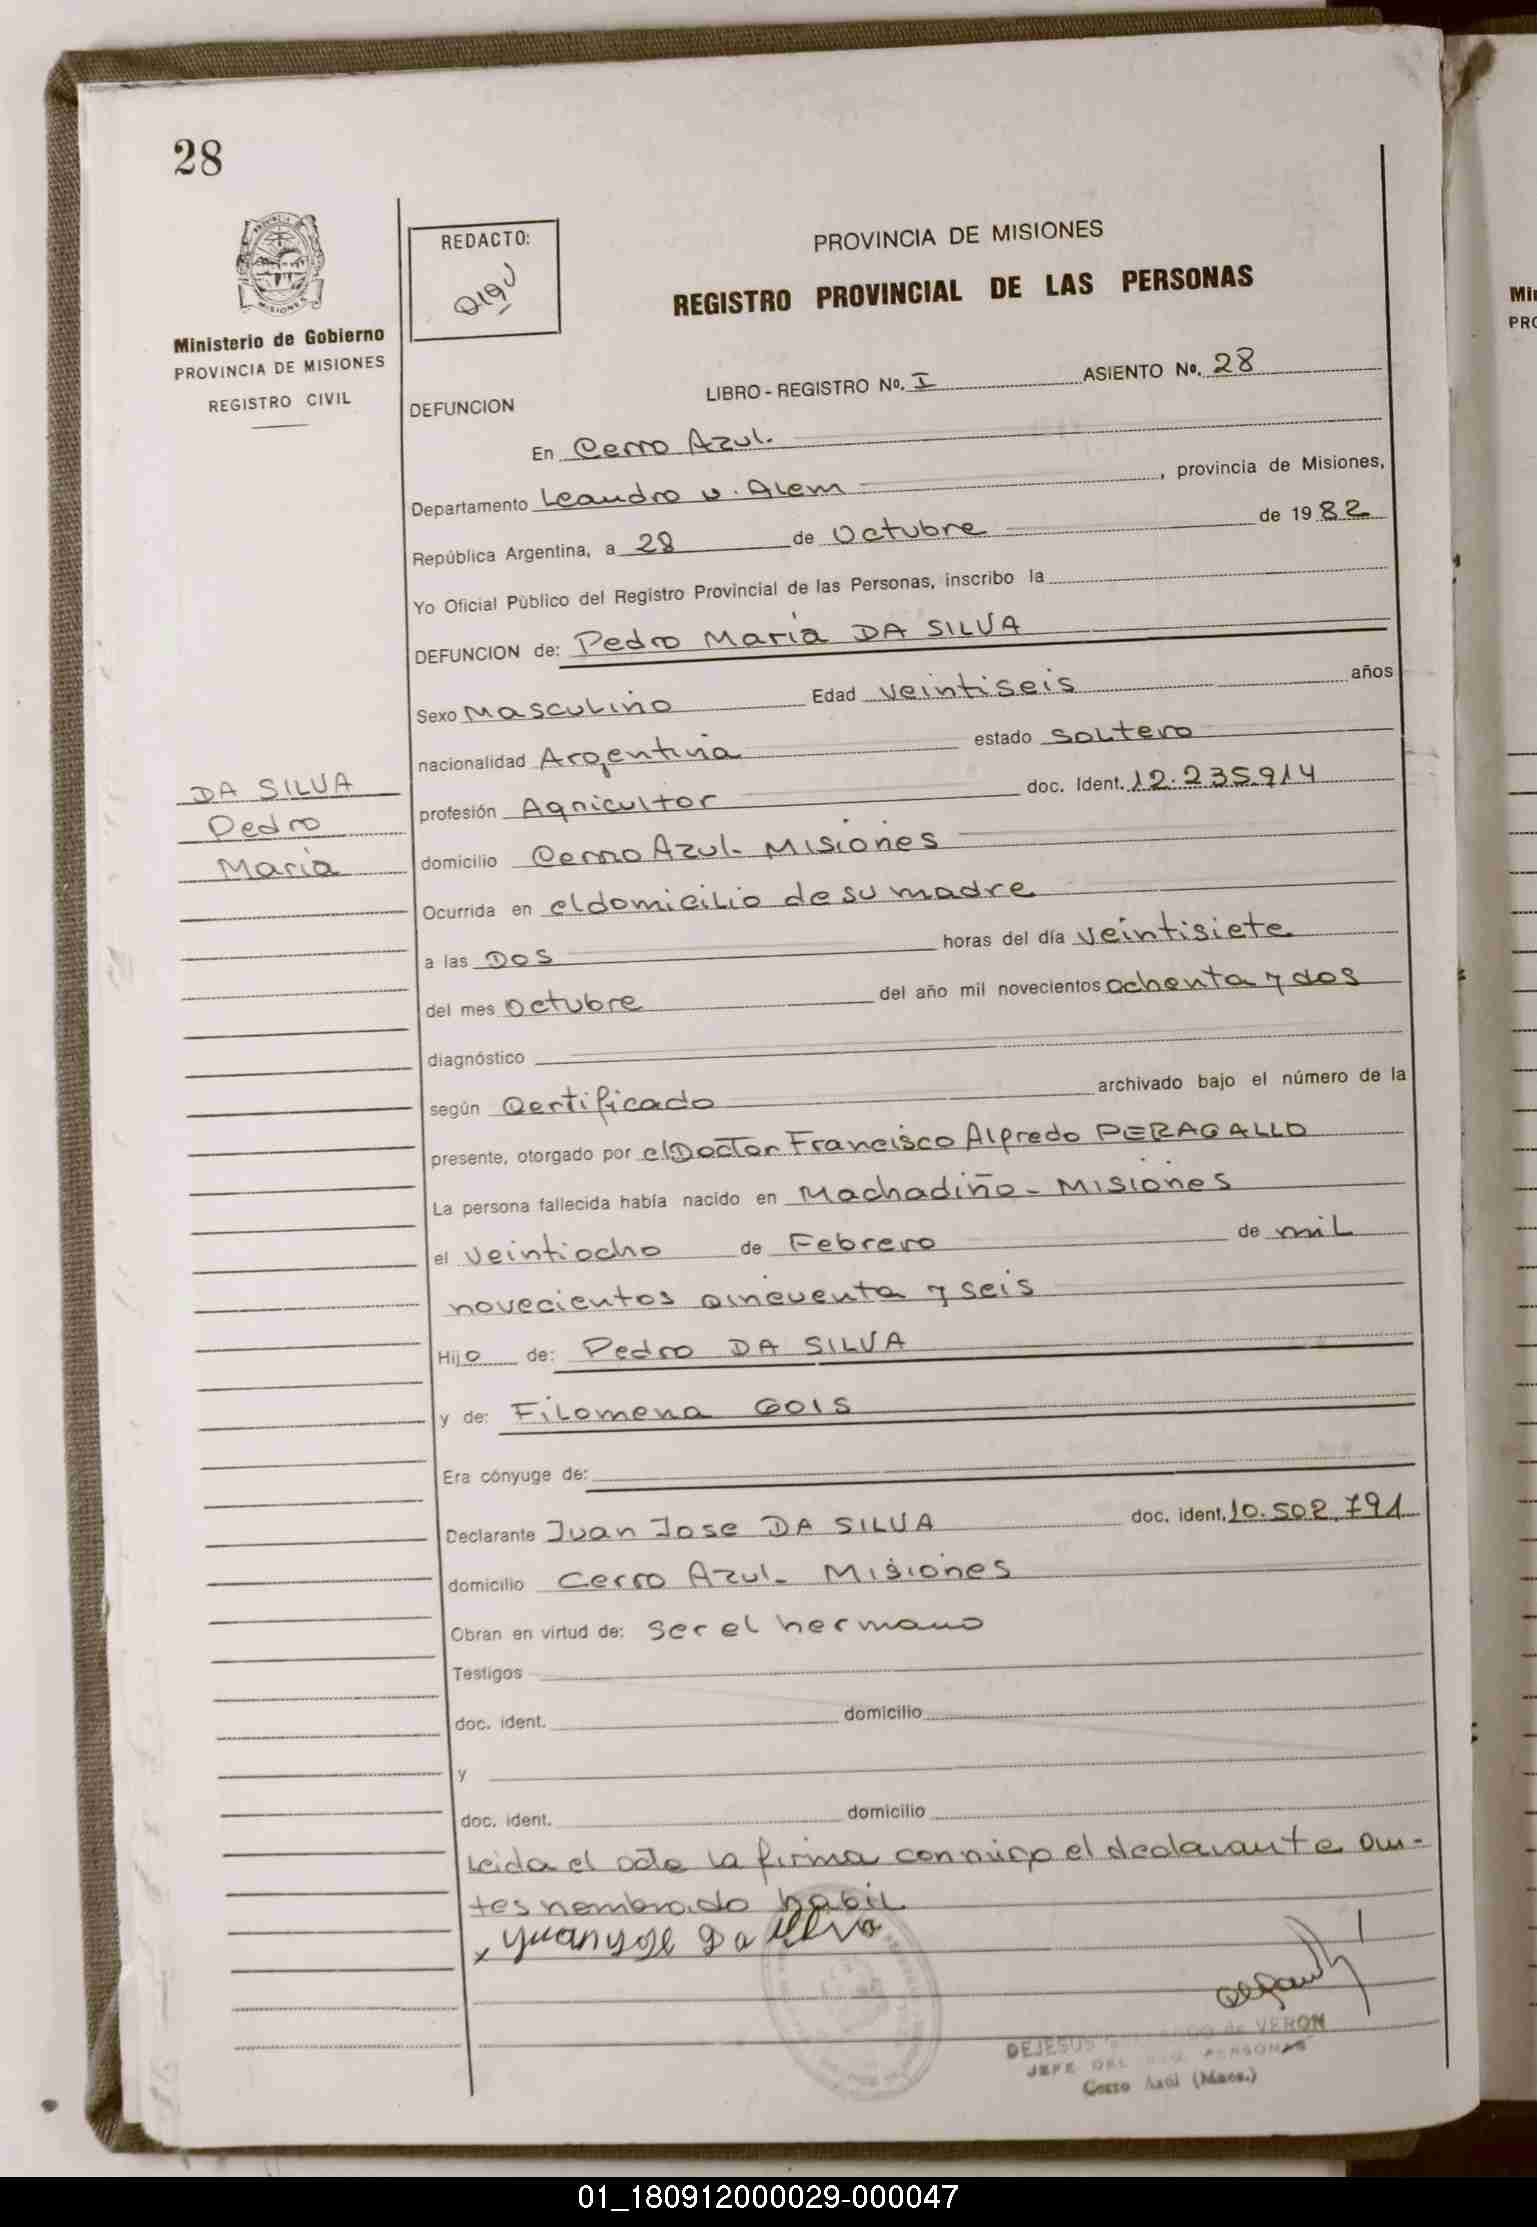 28
REDACTO:
PROVINCIA DE MISIONES
REGISTRO PROVINCIAL DE LAS PERSONAS
Ministerio de Gobierno
PROVINCIA DE MISIONES
REGISTRO CIVIL
LIBRO - REGISTRO No. I ASIENTO No. 28
DEFUNCION
En Cerro Azul.
Departamento Leandro N. Alem, provincia de Misiones,
República Argentina, a 28 de Octubre de 1982
Yo Oficial Público del Registro Provincial de las Personas, inscribo la
DEFUNCION de: Pedro Maria DA SILVA
Sexo Masculino Edad veintiseis años
nacionalidad Argentina estado soltero
DA SILVA
Pedro
Maria
profesión Agricultor doc. Ident. 12.235.914
domicilio Cerro Azul - Misiones
Ocurrida en el domicilio de su madre
a las DOS horas del día veintisiete
del mes octubre del año mil novecientos ochenta y dos
diagnóstico
según certificado archivado bajo el número de la
presente, otorgado por el Doctor Francisco Alfredo PERAGALLO
La persona fallecida había nacido en Machadiño - Misiones
el veintiocho de Febrero de mil
novecientos cincuenta y seis
Hijo de: Pedro DA SILVA
y de: Filomena GOIS
Era cónyuge de:
Declarante Juan Jose DA SILVA doc. ident. 10.502.791
domicilio Cerro Azul - Misiones
Obran en virtud de: ser el hermano
Testigos
doc. ident. domicilio
y
doc. ident. domicilio
Leida el acta la firma conmigo el declarante an-
tes nombrado habil
DEJESUS de VERON
JEFE DEL REG. PERSONAS
Cerro Azul (Mnes.)
Min
PRO
01_180912000029-000047